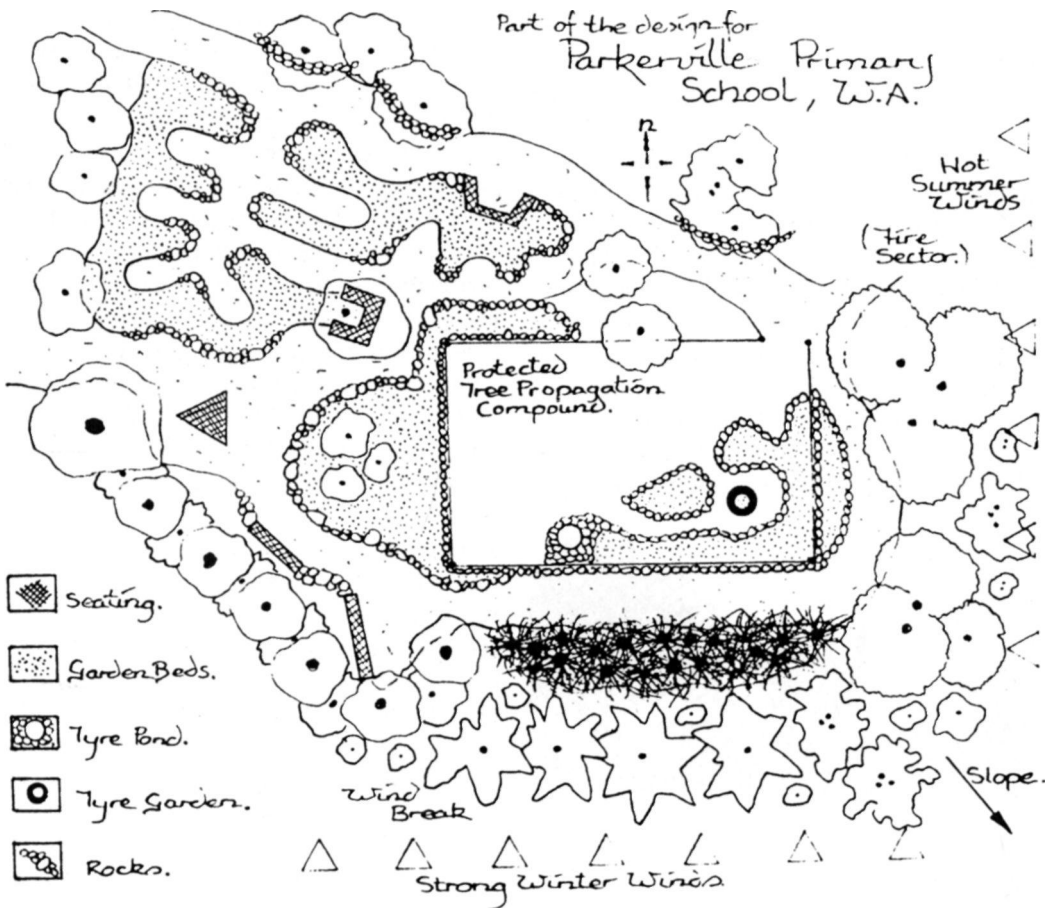 Part of the design for
Parkerville Primary
School, W.A.
n
Hot
Summer
Winds
(Fire
Sector.)
Protected
Tree Propagation
Compound.
Seating.
Garden Beds.
Tyre Pond.
Tyre Garden.
Rocks.
Wind
Break
Slope.
Strong Winter Winds